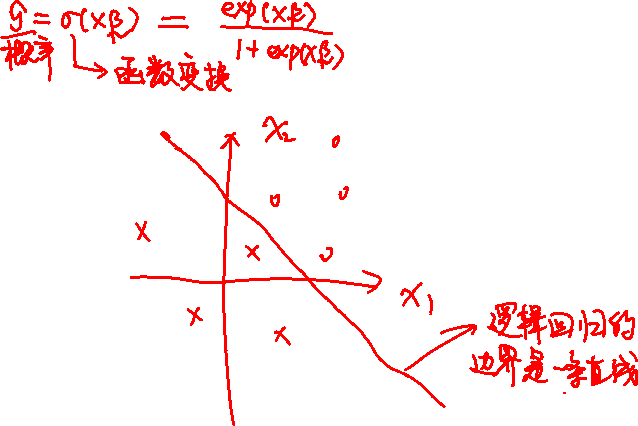 ŷ = σ(xβ) = exp(xβ) / 1+exp(xβ)
概率
函数变换
x₂
x₁
逻辑回归的
边界是一条直线